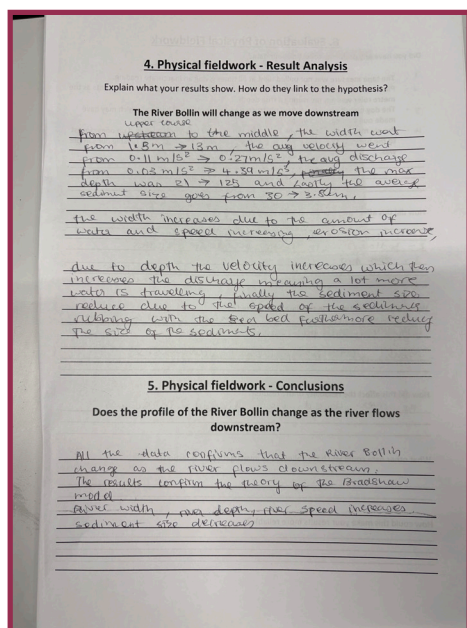 4. Physical fieldwork - Result Analysis
Explain what your results show. How do they link to the hypothesis?
The River Bollin will change as we move downstream
upper course
from upstream to the middle, the width went
from 1.8m → 13m, the avg velocity went
from 0.11 m/s² → 0.27m/s², the avg discharge
from 0.03 m/s² → 4.39 m/s³, the max
depth was 21 → 125 and lastly the average
sediment size goes from 30 → 3.8cm.
the width increases due to the amount of
water and speed increasing, erosion increase,
due to depth the velocity increases which then
increases the discharge meaning a lot more
water is traveling, finally the sediment size
reduce due to the speed of the sediments
rubbing with the bed furthermore reducy
the size of the sediments.
5. Physical fieldwork - Conclusions
Does the profile of the River Bollin change as the river flows
downstream?
All the data confirms that the River Bollin
change as the river flows downstream.
The results confirm the theory of the Bradshaw
model
River width, depth, river speed increases
sediment size decreases